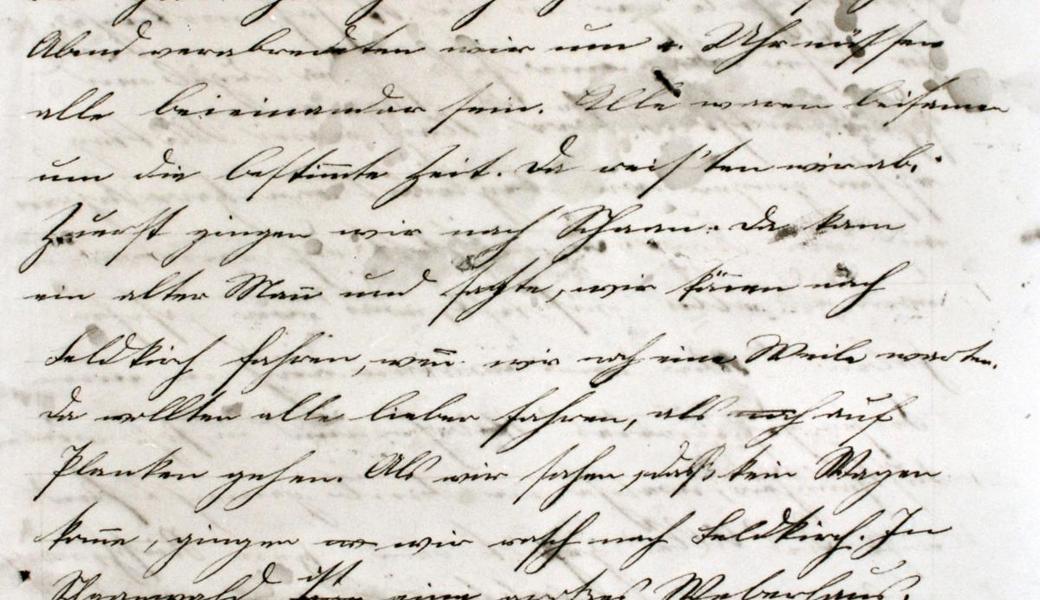 Abend verabredeten wir um 1. Uhr müssen
alle beieinander sein. Alle waren beisamen
um die bestim̄te Zeit. Da reis'ten wir ab.
Zuerst gingen wir nach Schaan. Da kam
ein alter Man̄ und sagte, wir kön̄en nach
Feldkirch fahren, wen̄ wir noch eine Weile warten.
Da wollten alle lieber fahren, als noch auf
Planken gehen. Als wir sahen, daß kein Wagen
kom̄e, gingen wir rasch nach Feldkirch. In
Schaanwald ist ein großes Weberhaus.